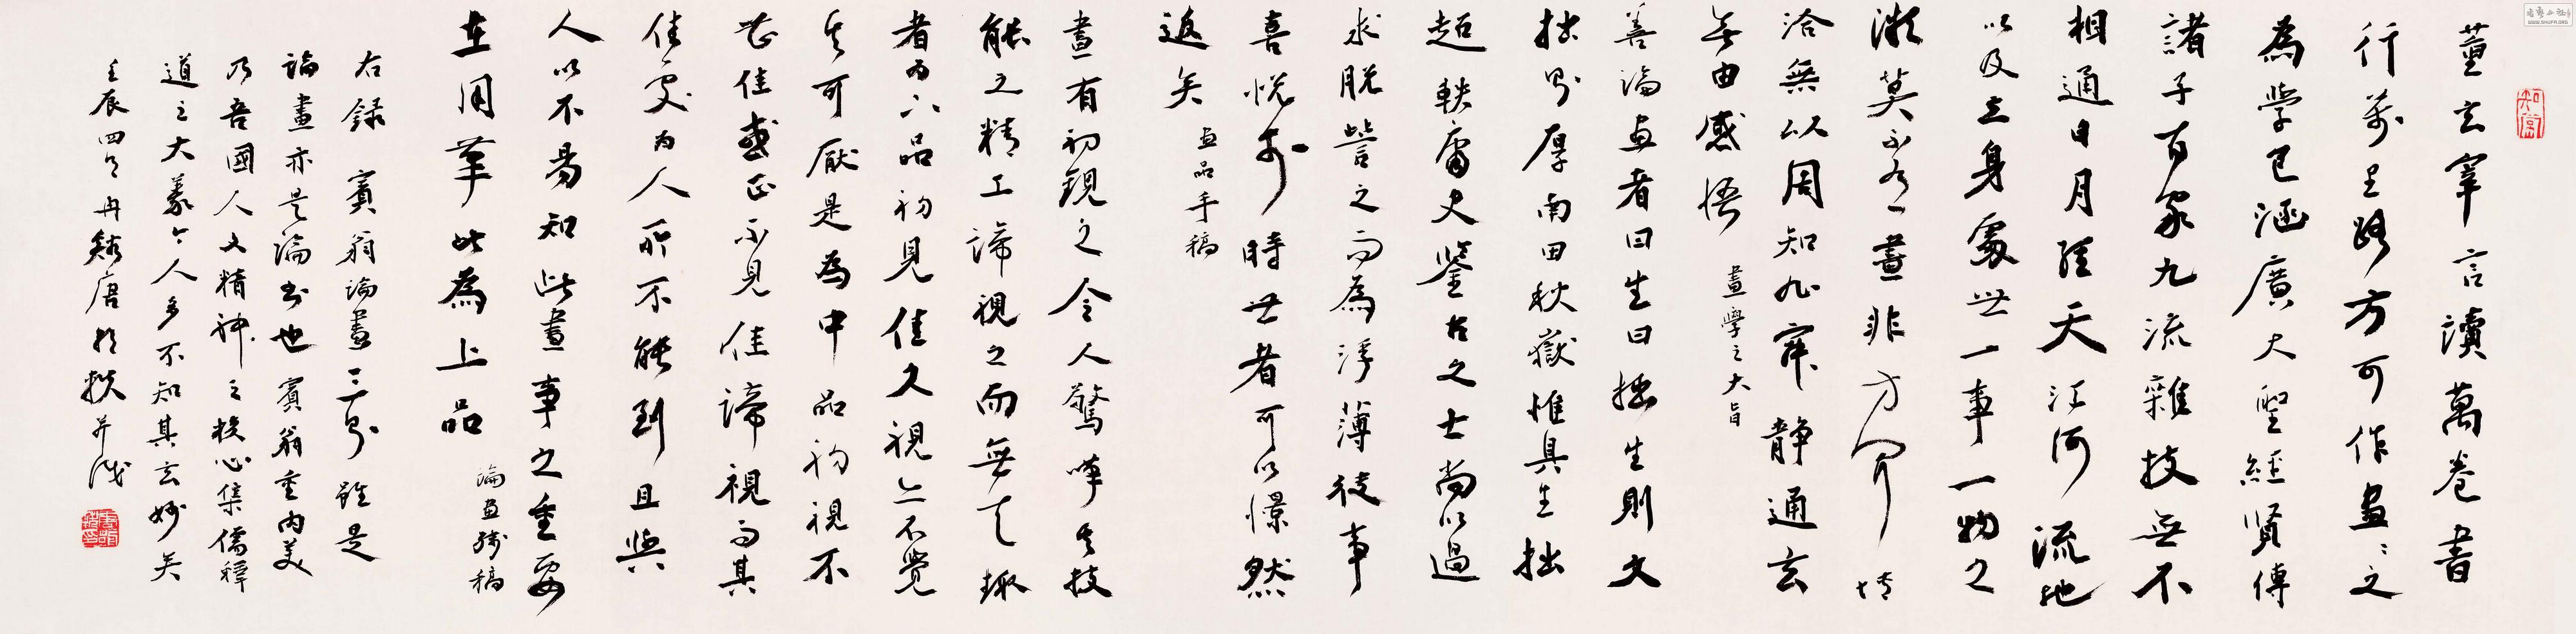 董玄宰言讀萬卷書
行萬里路方可作畫畫之
為學已涵廣大聖經賢傳
諸子百家九流雜技無不
相通日月經天江河流地
以及立身處世一事一物之
微莫不有畫非方聞情
洽無以周知非寂静通玄
無由感悟 畫學之大旨
善論畫者曰生曰拙生則文
拙則厚南田秋嶽惟具生拙
超軼庸史鑒古之士尚以過
求脱訾之而為浮薄徒事
喜悦於時世者可以憬然
返矣 畫品手稿
畫有初觀之令人驚嘩其技
能之精工諦視之而無天趣
者為下品初見佳久視亦不覺
其可厭是為中品初視不
甚佳或正不見佳諦視而其
佳處為人所不能到且與
人以不易知此畫事之重要
在用筆此為上品
論畫殘稿
右録賓翁論畫三則雖是
論畫亦是論書也賓翁重内美
乃吾國人文精神之核心集儒釋
道之大義今人多不知其玄妙矣
壬辰四月冉
并識